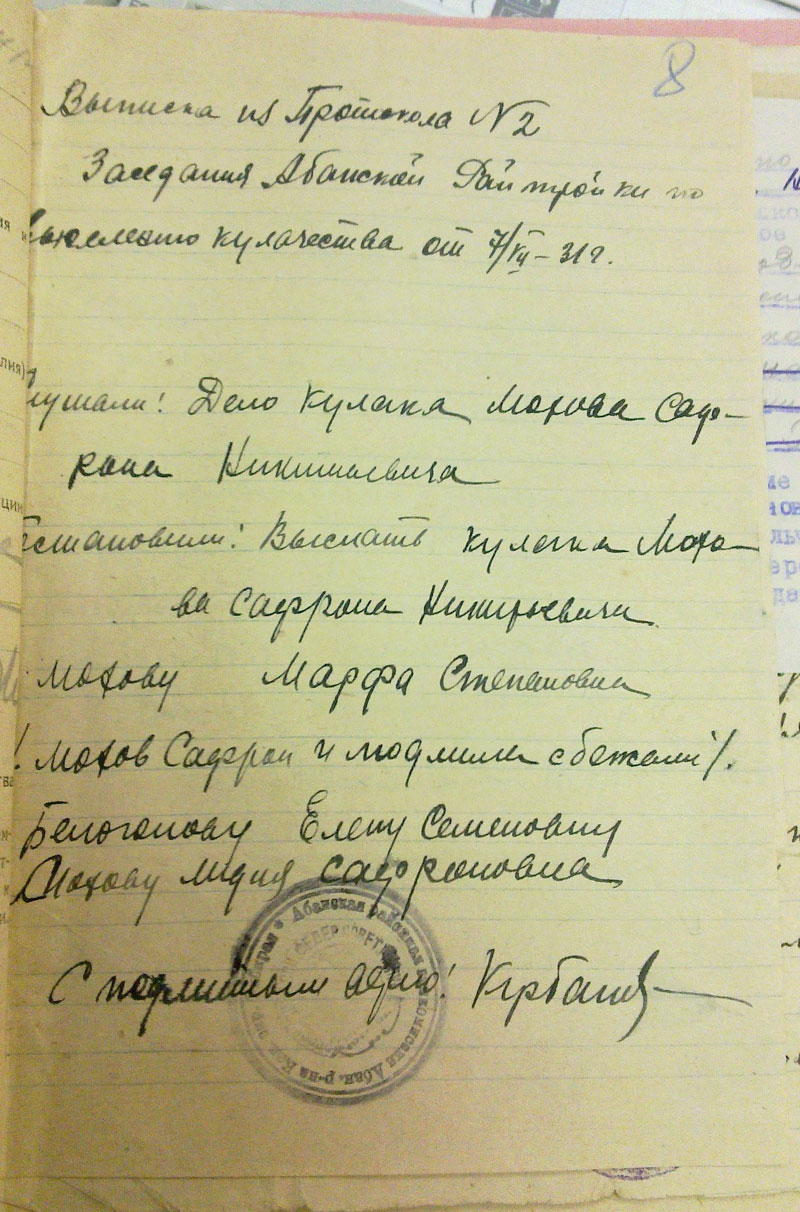 8
Выписка из Протокола N 2
Заседания Абанской Рай тройки по
выселению кулачества от 7/VII – 31 г.
лушали! Дело кулака Мохова Сафо-
рона Никитьевича
становили: Выслать кулака Мохо-
ва Сафрона Никитьевича
Мохову Марфа Степановна
! Мохов Сафрон и Людмила сбежали/.
Белоголову Елену Семеновну
Мохову Лидия Сафроновна
С подлинным верно!